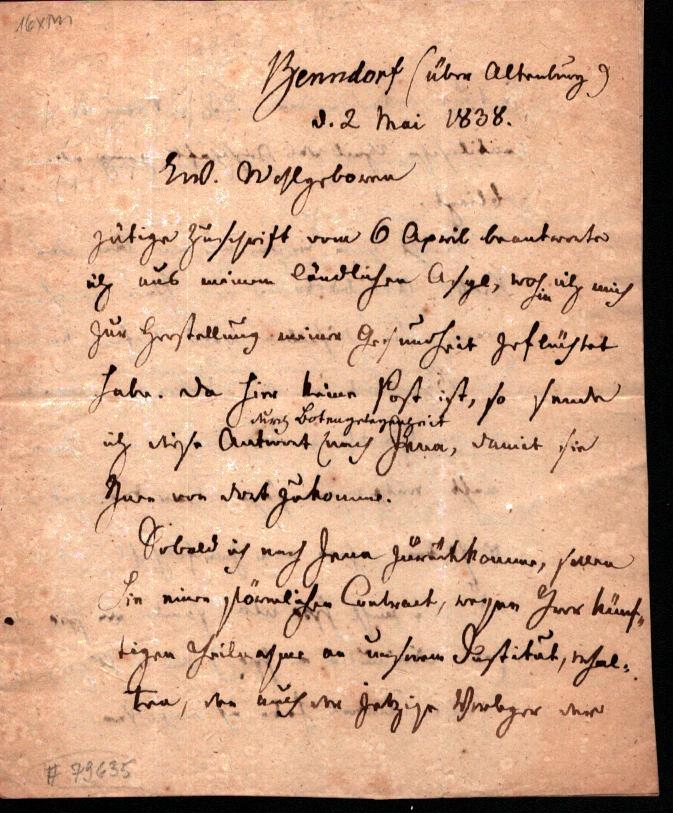 16XIII
Benndorf (über Altenburg)
d. 2 Mai 1838.
Ew. Wohlgeboren
gütige Zuschrift vom 6 April beantworte
ich aus meinem ländlichen Asyl, wohin ich mich
zur Herstellung meiner Gesundheit geflüchtet
habe. Da hier keine Post ist, so sende
durch Botengelegenheit
ich diese Antwort nach Jena, damit sie
Ihnen von dort zukomme.
Sobald ich nach Jena zurückkomme, sollen
Sie einen förmlichen Contract, wegen Ihrer künf-
tigen Theilnahme an unserem Institut, erhal-
ten, den auch der jetzige Verleger der
# 79635